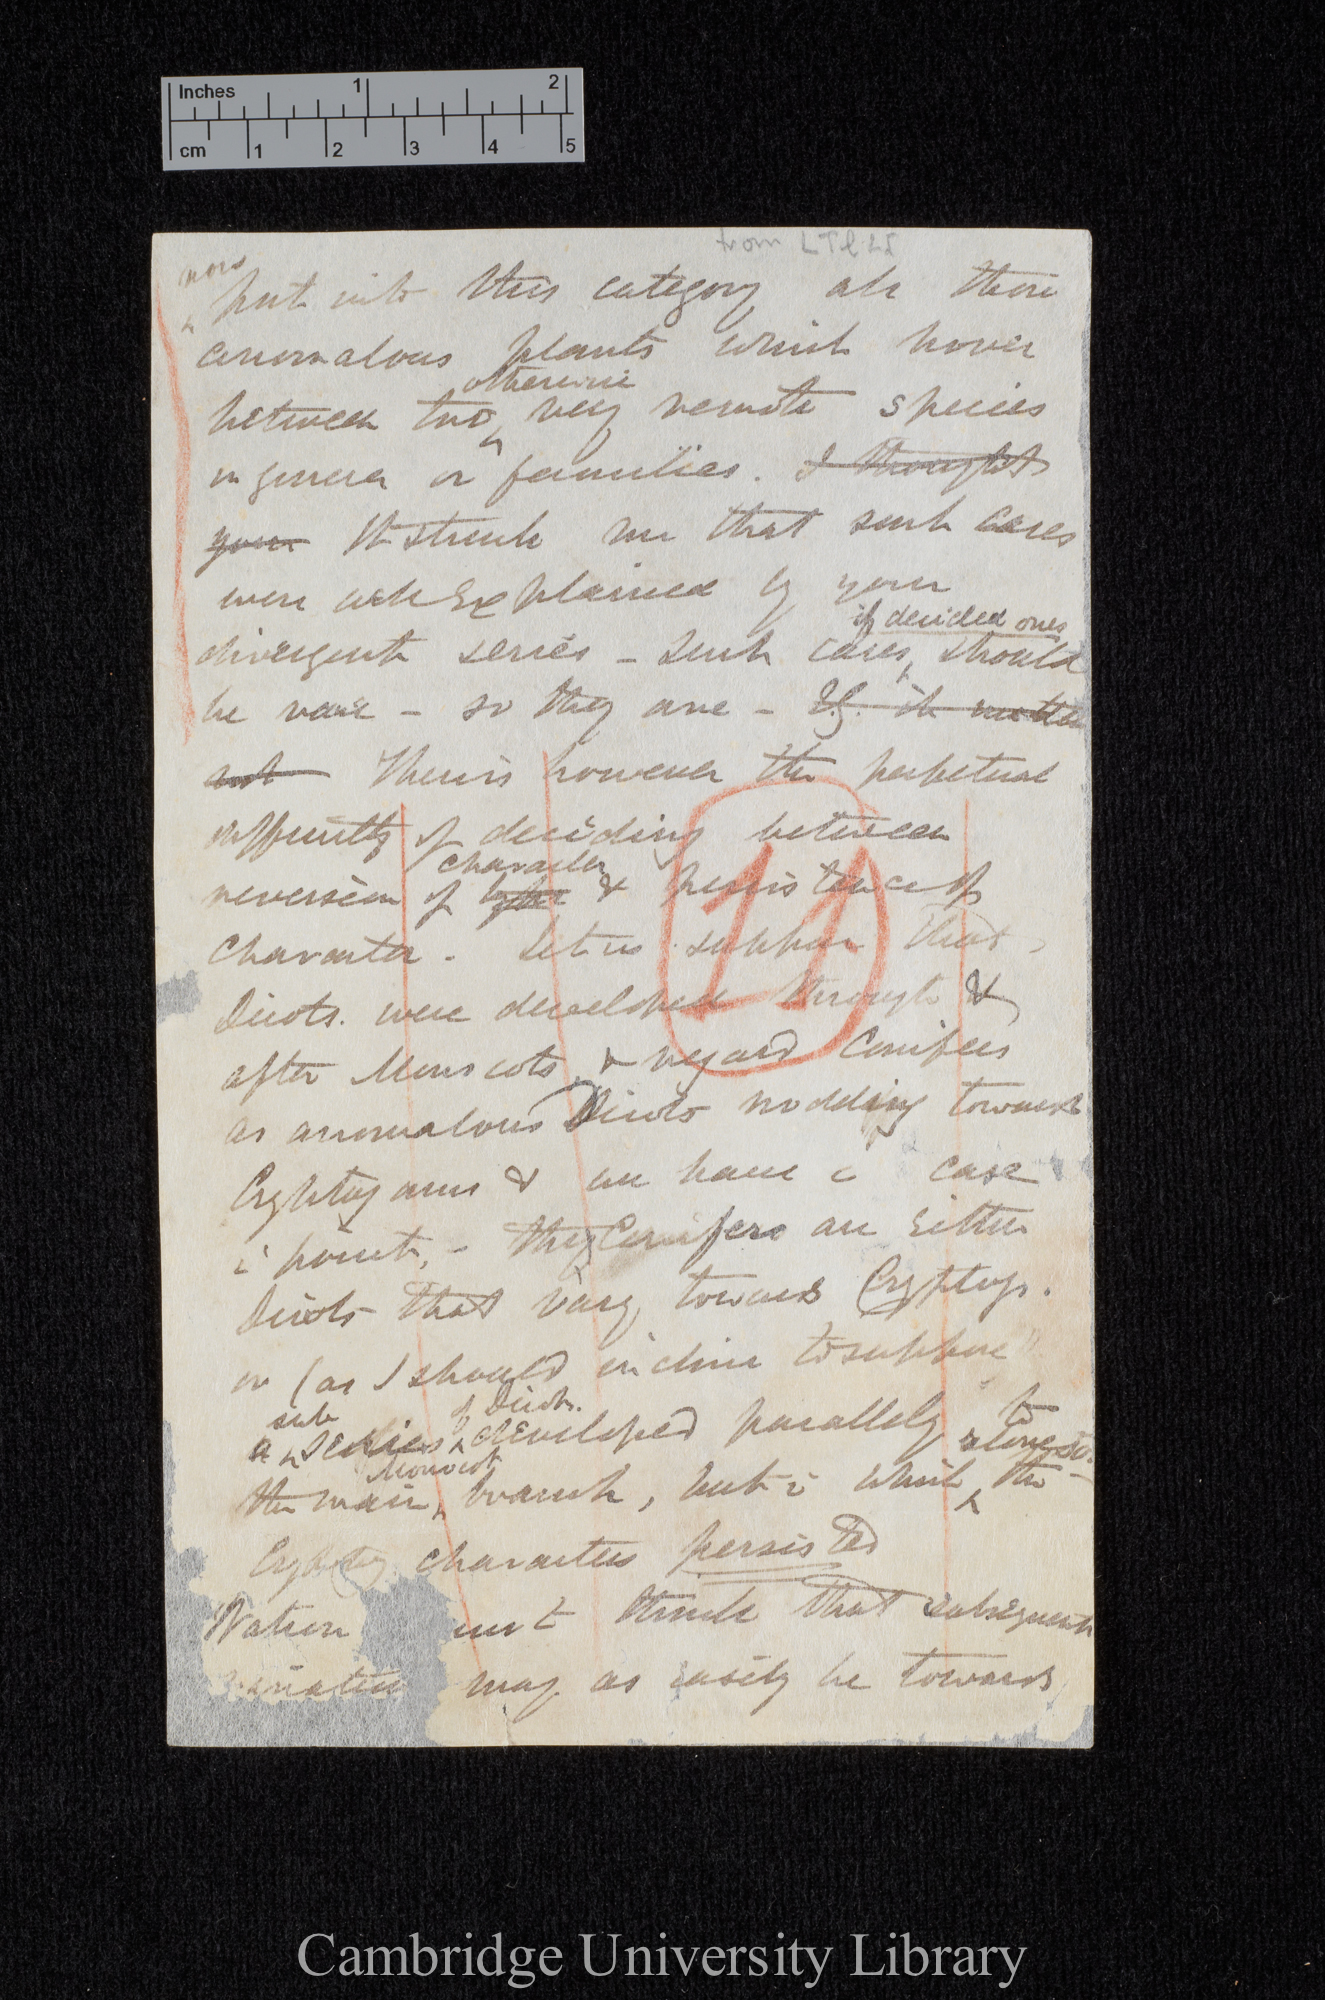 Inches 1 2
cm 1 2 3 4 5
from
now
put into this category all those
anomalous plants which hover
otherwise
between two very remote species
or genera or families. I thought
your It struck me that such cases
were all explained by your
if decided ones
divergent series – such cases, should
be rare – so they are – If it
not There is however the perpetual
difficulty of deciding between
character
reversion of & persistence of
character. Let us suppose that
Dicots. were developed through &
after Monocots, & regard Conifers
as anomalous Dicots nodding towards
Cryptogams & we have a case
i point, – They Conifers are either
Dicots that vary towards Cryptogs.
or (as I should incline to suppose"
sub of Dicots. to
a series, developed parallelly alongside
Monocot
the main, branch, but i which the
Cryptog. characters persisted
Watson not think that subsequent
variation may as easily be towards
11
Cambridge University Library